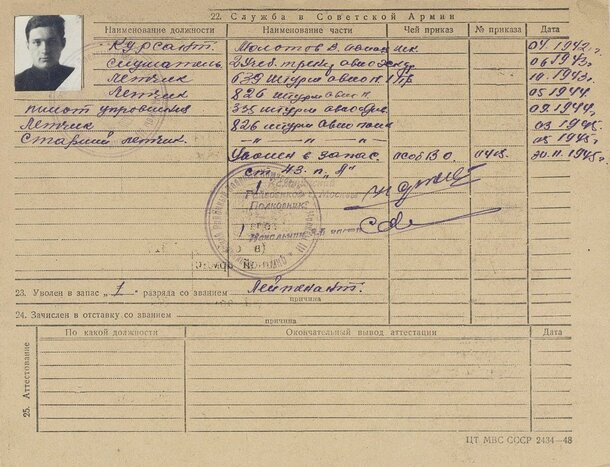 22. Служба в Советской Армии
Наименование должности Наименование части Чей приказ № приказа Дата
Курсант. Молотов В. авиац шк. 04 1942 г.
Слушатель. 06 1943 г.
Летчик 639 штурм авиоп 10. 1943 г.
Летчик 826 штурм авиоп 05 1944
пилот управления 335 штурм 09 1944 г.
Летчик 826 штурм авиополк 03 1945.
Старший летчик. " " " 05 1945 г.
Уволен в запас особ В О. 0415. 20. 11. 1945 г.
ст 43. п. "А"
Полковник
23. Уволен в запас „ 1 " разряда со званием Лейтенант.
причина
24. Зачислен в отставку со званием
причина
25. Аттестование
По какой должности Окончательный вывод аттестации Дата
ЦТ МВС СССР 2434—48